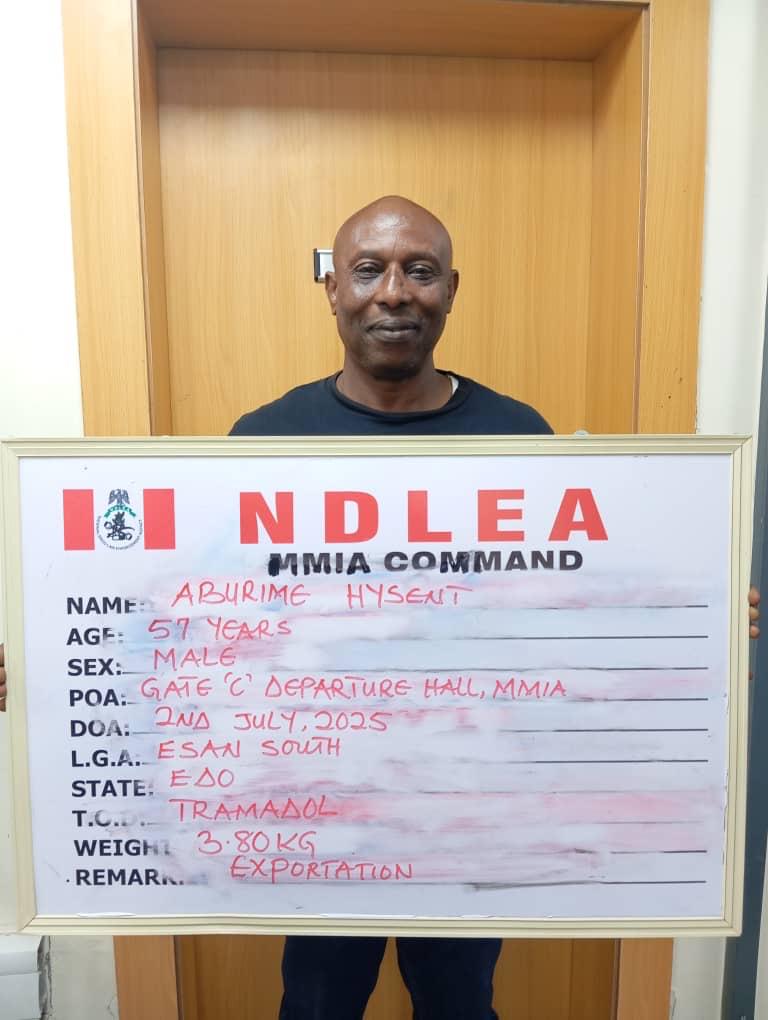 NDLEA
MMIA COMMAND
NAME: ABURIME HYSENT
AGE: 57 YEARS
SEX: MALE
POA: GATE 'C' DEPARTURE HALL, MMIA
DOA: 2ND JULY, 2025
L.G.A: ESAN SOUTH
STATE: EDO
T.O.D. TRAMADOL
WEIGHT 3.80KG
REMARK: EXPORTATION